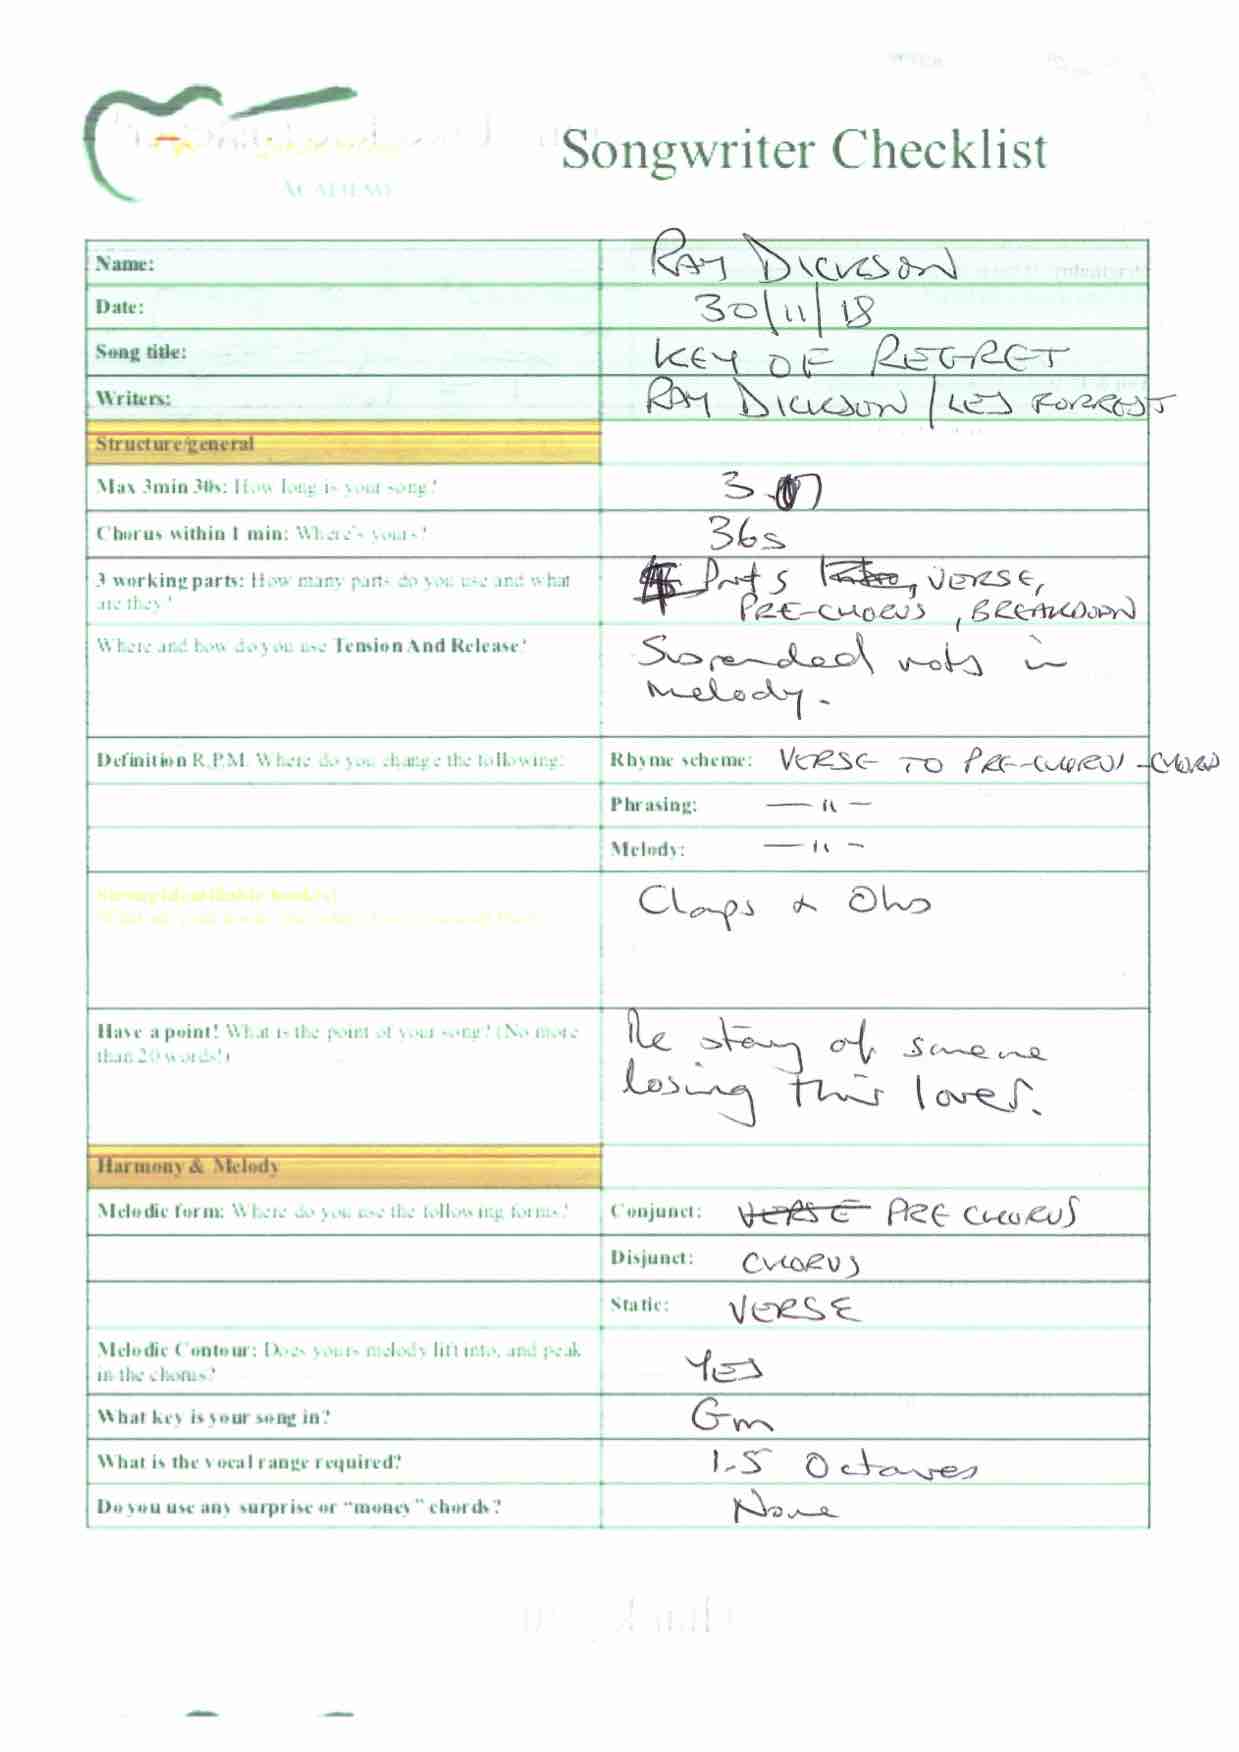 ACADEMY
Songwriter Checklist
Name: RAY DICKSON
Date: 30/11/18
Song title: KEY OF REGRET
Writers: RAY DICKSON / LES FORREST
Structure/general
Max 3min 30s: How long is your song? 3.07
Chorus within 1 min: Where's yours? 36s
3 working parts: How many parts do you use and what Parts Intro, VERSE,
are they? PRE-CHORUS, BREAKDOWN
Where and how do you use Tension And Release? Suspended nots in
Melody.
Definition R.P.M. Where do you change the following: Rhyme scheme: VERSE TO PRE-CHORUS - CHORUS
Phrasing: — 11 —
Melody: — 11 —
Strong identifiable hook(s)! Claps & Ohs
Have a point! What is the point of your song? (No more The story of someone
than 20 words!) losing their lover.
Harmony & Melody
Melodic form: Where do you use the following forms? Conjunct: VERSE PRE CHORUS
Disjunct: CHORUS
Static: VERSE
Melodic Contour: Does yours melody lift into, and peak
in the chorus? YES
What key is your song in? Gm
What is the vocal range required? 1.5 Octaves
Do you use any surprise or “money” chords? None